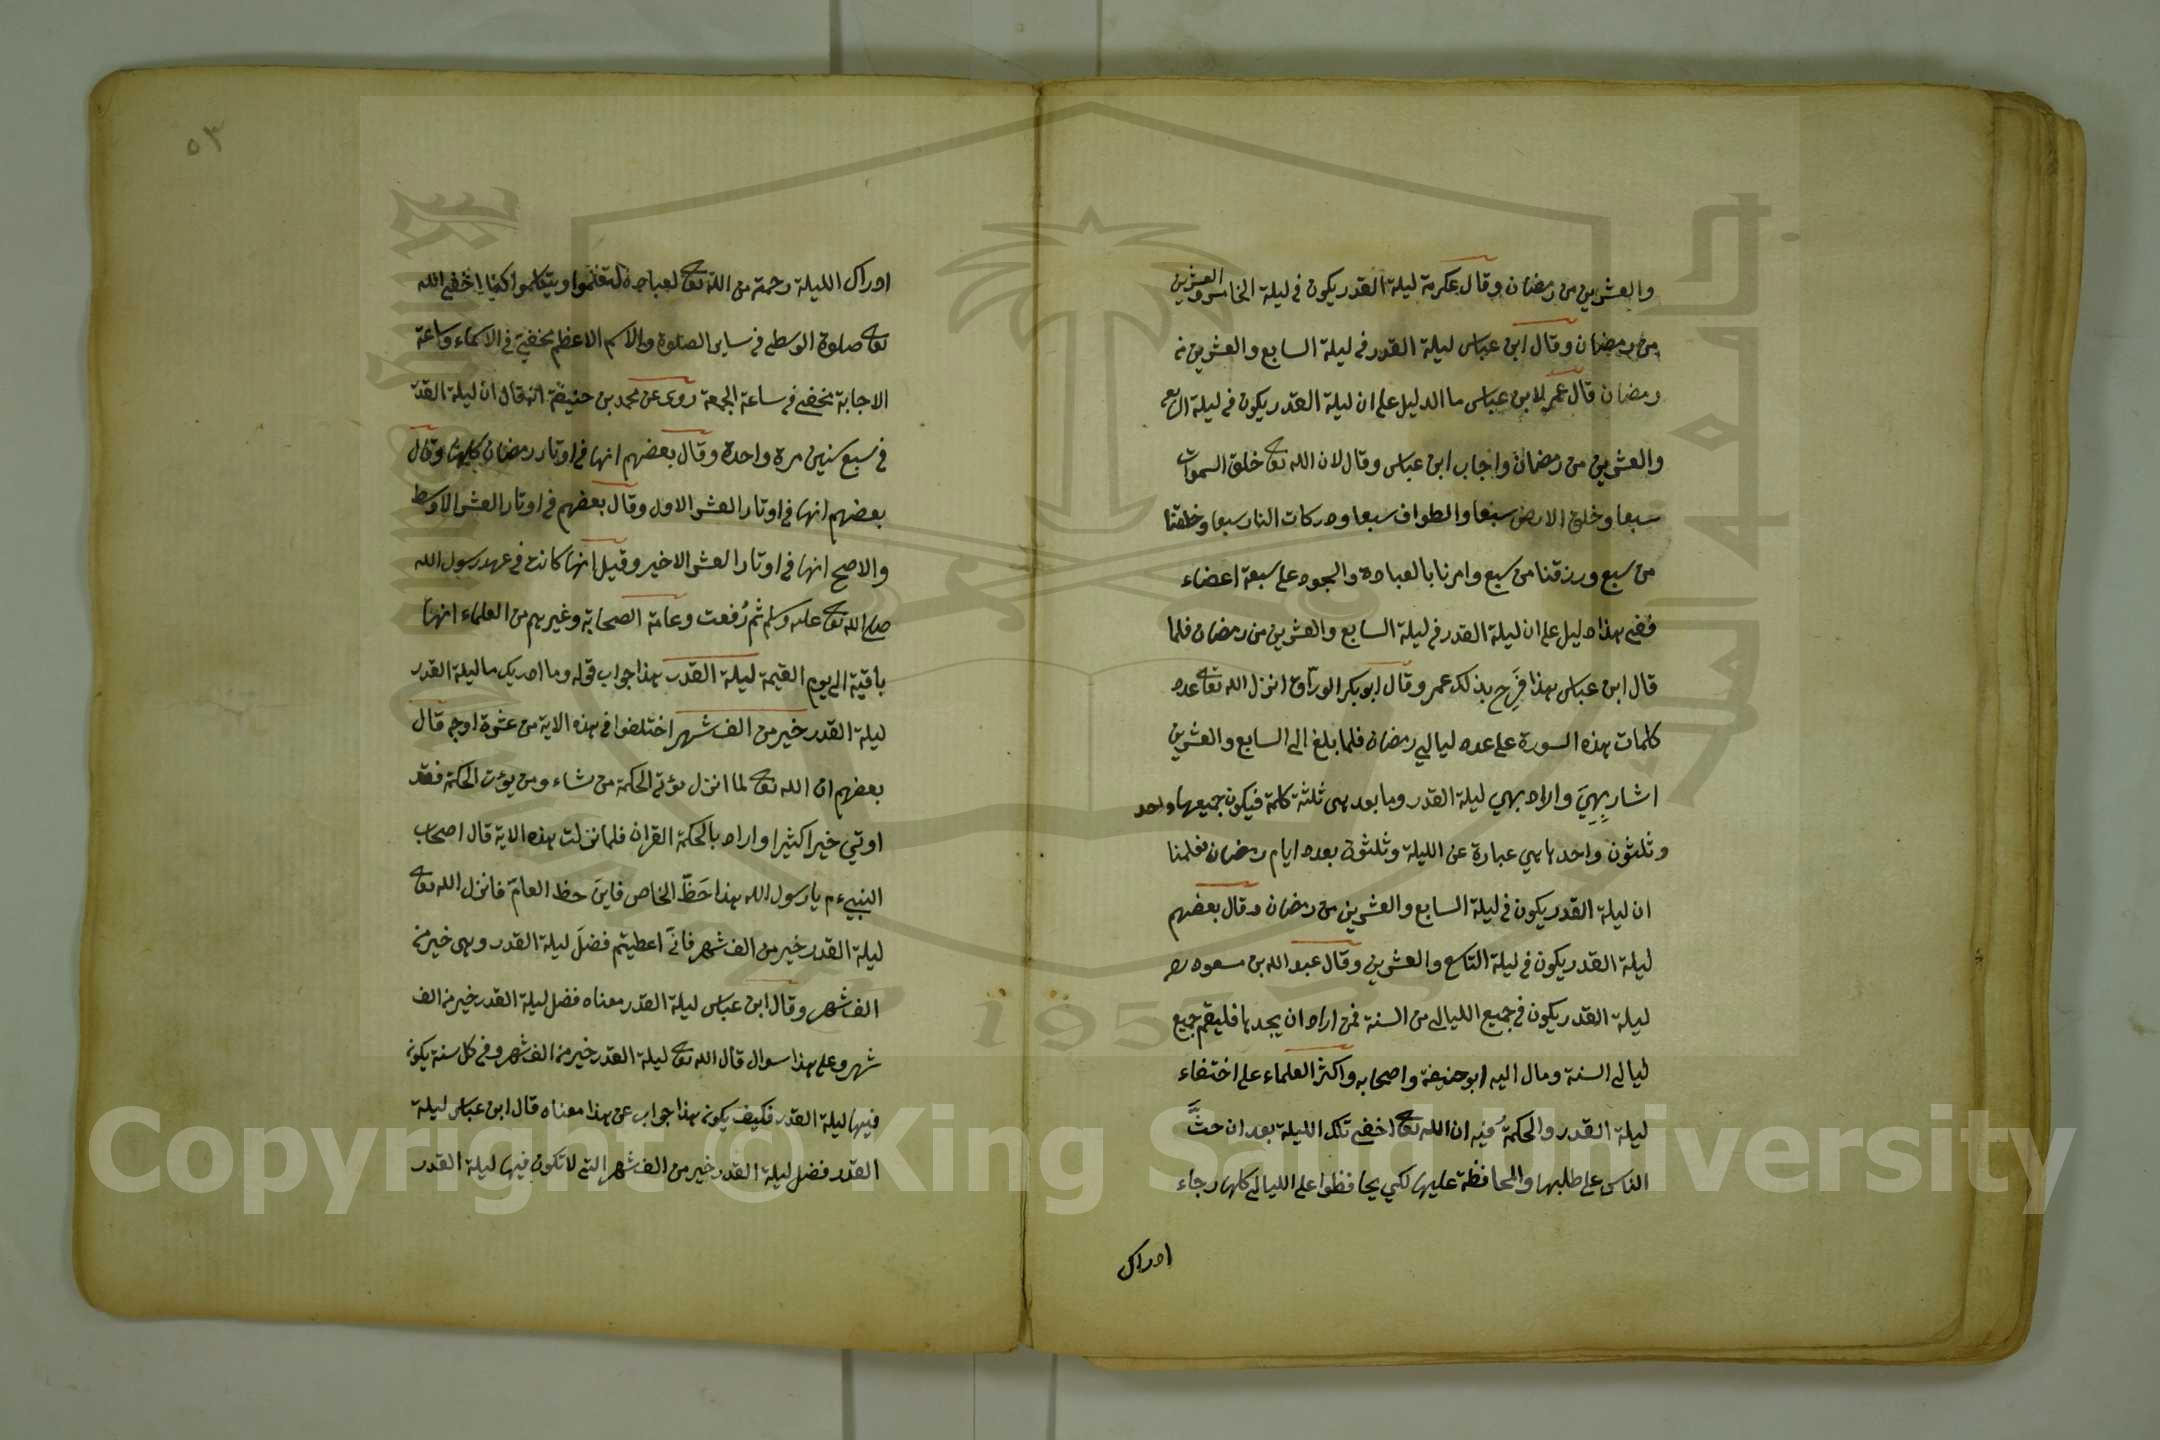 والعشرين من رمضان وقال عكرمة ليلة القدر يكون في ليلة الخامس والعشرين
من رمضان وقال ابن عباس ليلة القدر في ليلة السابع والعشرين من
رمضان قال عمر لابن عباس ما الدليل على ان ليلة القدر يكون في ليلة السابع
والعشرين من رمضان واجاب ابن عباس وقال لان الله تعالى خلق السموات
سبعا وخلق الارض سبعا والطواف سبعا ودركات النار سبعا وخلقنا
من سبع ورزقنا من سبع وامرنا بالعبادة والسجود على سبعة اعضاء
ففي هذا دليل على ان ليلة القدر في ليلة السابع والعشرين من رمضان فلما
قال ابن عباس بهذا فرح بذلك عمر وقال ابو بكر الوراق انزل الله تعالى عدد
كلمات هذه السورة على عدد ليالي رمضان فلما بلغ الى السابع والعشرين
اشار بهي واراد بهي ليلة القدر وما بعد هى ثلثة كلمة فيكون جميعها واحد
وثلثون واحدها هي عبارة عن الليلة وثلثون بعدد ايام رمضان فعلمنا
ان ليلة القدر يكون في ليلة السابع والعشرين من رمضان وقال بعضهم
ليلة القدر يكون في ليلة التاسع والعشرين وقال عبد الله بن مسعود رضـ
ليلة القدر يكون في جميع الليالى من السنة فمن اراد ان يجدها فليقم جميع
ليالى السنة ومال اليه ابو حنيفة واصحابه واكثر العلماء على اختفاء
ليلة القدر والحكمة فيه ان الله تعالى اخفى تلك الليلة بعد ان حثَّ
الناس على طلبها والمحافظة عليها لكي يحافظوا على الليالى كلها رجاء
ادراك
٥٣
ادراك الليلة رحمة من الله تعالى لعباده ويتكلموا كما اخفى الله
تعالى صلوة الوسطى في ساير الصلوة والاسم الاعظم مخفي في الاسماء وساعة
الاجابة مخفى في ساعة الجمعة روى عن محمد بن حنيفة انه قال ان ليلة القدر
في سبع سنين مرة واحدة وقال بعضهم انها في اوتار رمضان كلها وقال
بعضهم انها في اوتار العشر الاول وقال بعضهم في اوتار العشر الاوسط
والاصح انها في اوتار العشر الاخير وقيل انها كانت في عهد رسول الله
صلى الله تعالى عليه وسلم ثم رُفعت وعامة الصحابة وغيرهم من العلماء انها
باقية الى يوم القيمة ليلة القدر هذا جواب قوله وما ادريك ما ليلة القدر
ليلة القدر خير من الف شهر اختلفوا في هذه الاية من عشرة اوجه قال
بعضهم ان الله تعالى لما انزل يؤتي الحكمة من شاء ومن يؤت الحكمة فقد
اوتي خيرا كثيرا واراد بالحكمة القران فلما نزلت هذه الاية قال اصحاب
النبي ءم يا رسول الله هذا حَظّ الخاص فاين حظ العام فانزل الله تعالى
ليلة القدر خير من الف شهر فانّ اعطيتم فضل ليلة القدر وهى خير من
الف شهر وقال ابن عباس ليلة القدر معناه فضل ليلة القدر خير من الف
شهر وعلى هذا سوال قال الله تعالى ليلة القدر خير من الف شهر وفى كل سنة يكون
فيها ليلة القدر فكيف يكون هذا جواب عن هذا معناه قال ابن عباس ليلة
القدر فضل ليلة القدر خير من الف شهر التى لا تكون فيها ليلة القدر
1957
Copyright © King Saud University